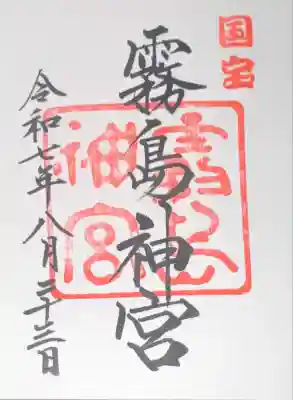 国宝
霧島神宮
霧島
神宮
令和七年八月二十三日